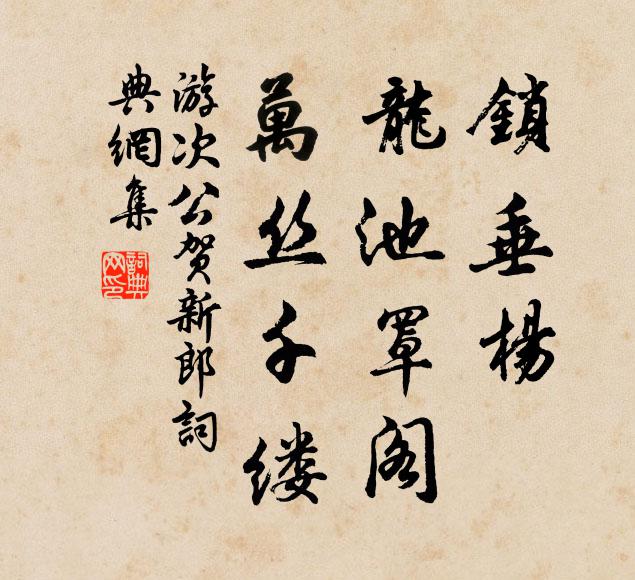 鎖垂楊
龍池罩阁
萬丝千缕
游次公贺新郎詞
典網集
詞典网印